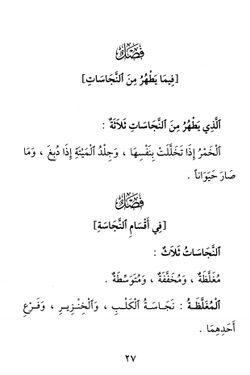 فَصْلٌ
[فِيمَا يَطْهُرُ مِنَ ٱلنَّجَاسَاتِ]
ٱلَّذِي يَطْهُرُ مِنَ ٱلنَّجَاسَاتِ ثَلَاثَةٌ :
ٱلْخَمْرُ إِذَا تَخَلَّلَتْ بِنَفْسِهَا ، وَجِلْدُ ٱلْمَيْتَةِ إِذَا دُبِغَ ، وَمَا
صَارَ حَيَوَاناً .
فَصْلٌ
[فِي أَقْسَامِ ٱلنَّجَاسَةِ]
ٱلنَّجَاسَاتُ ثَلَاثٌ :
مُغَلَّظَةٌ ، وَمُخَفَّفَةٌ ، وَمُتَوَسِّطَةٌ .
ٱلْمُغَلَّظَةُ : نَجَاسَةُ ٱلْكَلْبِ ، وَٱلْخِنْزِيرِ ، وَفَرْعِ
أَحَدِهِمَا .
٢٧